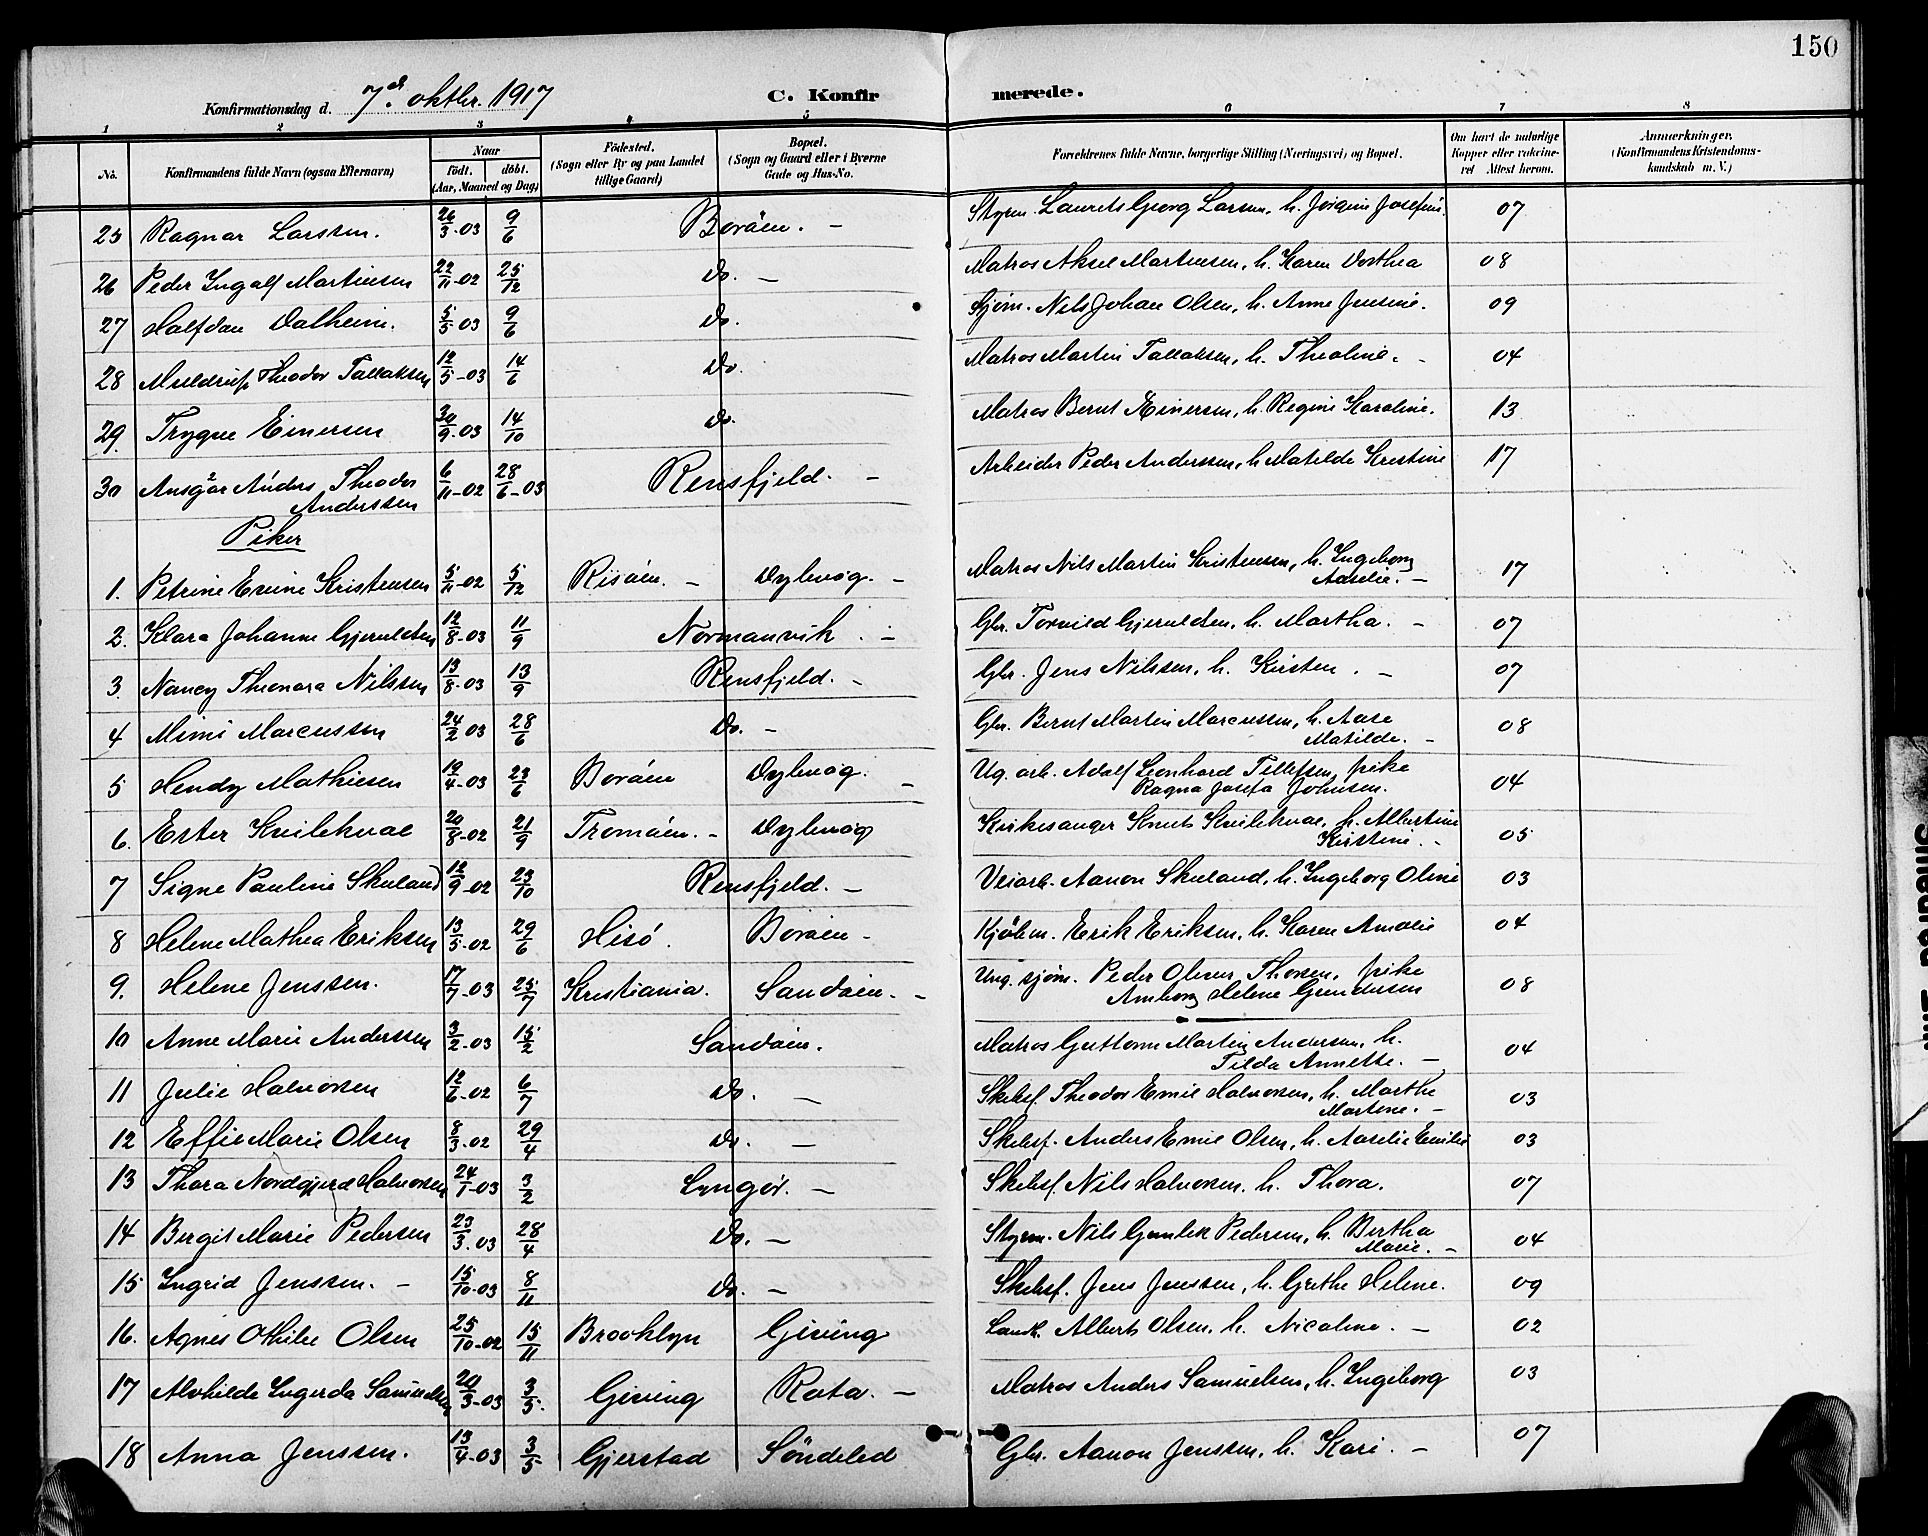 150
Konfirmationsdag d. 7de oktbr. 1917 C. Konfirmerede.
1 2 3 4 5 6 7 8
No. Konfirmandens fulde Navn (ogsaa Efternavn) Naar födt. döbt. (Aar, Maaned og Dag) Födested. (Sogn eller By og paa Landet tillige Gaard) Bopæl. (Sogn og Gaard eller i Byerne Gade og Hus-No. Forældrenes fulde Navne, borgerlige Stilling (Næringsvei) og Bopæl. Om havt de naturlige Kopper eller vakcineret Attest herom. Anmærkninger. (Konfirmandens Kristendomskundskab m. V.)
25 Ragnar Larssen. 26/3-03 9/6 Boröen. - Styrm. Laurits Georg Larsen, h. Jörgine Josefine. 07
26 Peder Ingolf Martinsen 22/11-02 25/12 Do. - Matros Aksel Martinsen, h. Karen Dorthea 08
27 Halfdan Dalheim. 5/5-03 9/6 Do. Sjöm. Nils Johan Olsen, h. Anne Jensine. 09
28 Muldrup Theodor Tallaksen 12/5-03 14/6 Do. Matros Martin Tallaksen, h. Theoline. - 04
29. Trygve Einersen 30/9-03 14/10 Do. Matros Bernt Einersen, h. Regine Karoline. 13
30 Ansgar Anders Theodor Anderssen 6/11-02 28/6-03 Rensfjeld. - Arbeider Peder Anderssen, h. Matilde Kristine 17
Piker
1. Petrine Evine Kristensen 5/11-02 5/12 Risöen. - Dybvog. - Matros Nils Martin Kristensen, h. Ingeborg Aaselie. - 17
2. Klara Johanne Gjeruldsen 12/8-03 11/9 Normanvik. - Gbr. Torvild Gjeruldsen, h. Martha. - 07
3. Nancy Theonora Nilssen 13/8-03 13/9 Rensfjeld. - Gbr. Jens Nilssen, h. Kirsten. - 07
4 Mimi Marcussen 24/2 03 28/6 Do. - Gbr. Bernt Martin Marcussen, h. Aase Matilde. - 08
5 Hendy Mathiesen 19/4-03 23/6 Boröen Dybvog. - Ug. arb. Adolf Leonhard Tellefsen, pike Ragna Josefa Johnsen. 04
6. Ester Kvilekval 20/8-02 21/9 Tromöen. - Dybvog Kirkesanger Knut Kvilekval, h. Albertine Kirstine. - 05
7 Signe Pauline Skuland 12/9-02 23/10 Rensfjeld. - Veiarb. Aanon Skuland, h. Ingeborg Oline 03
8 Helene Mathea Eriksen 13/5-02 29/6 Hisö. Boröen - Kjöbm. Erik Eriksen, h. Karen Amalie 04
9. Helene Jenssen. 17/7-03 25/7 Kristiania. Sandöen. - Ung. sjöm. Peder Oluus Thorsen, pike Amborg Helene Gundersen 08
10 Anne Marie Anderssen 3/2-03 15/2 Sandöen. Matros Guttorm Martin Andersen, h. Tilda Annette. - 04
11 Julie Halvorsen 12/6-02 6/7 Do. - Skibsf. Theodor Emil Halvorsen, h. Marthe Martine. - 03
12 Effie Marie Olsen 8/3-02 29/4 Do. - Skibsf. Anders Emil Olsen, h. Aaselie Emilie 03
13 Thora Nordgjerd Halvorsen 24/1-03 3/2 Lyngör. - Skibsf. Nils Halvorsen. h. Thora. 07
14 Bergit Marie Pedersen 23/3-03 28/4 Do. - Styrm. Nils Gundek Pedersen, h. Bertha Marie. - 04
15 Ingrid Jenssen. - 15/10-03 8/11 Do. - Skibsf. Jens Jenssen, h. Grethe Helene. 09
16. Agnes Othilie Olsen 25/10-02 15/11 Brooklyn Gjeving Landh. Albert Olsen, h. Nicoline. - 02
17 Alvhilde Ingerda Samuelsen 20/3-03 3/5. Gjeving Rota. - Matros Anders Samuelsen, h. Ingeborg 03
18 Anna Jenssen. 13/4-03 3/5 Gjerstad Söndeled Gbr. Aanon Jenssen, h. Kari. - 07